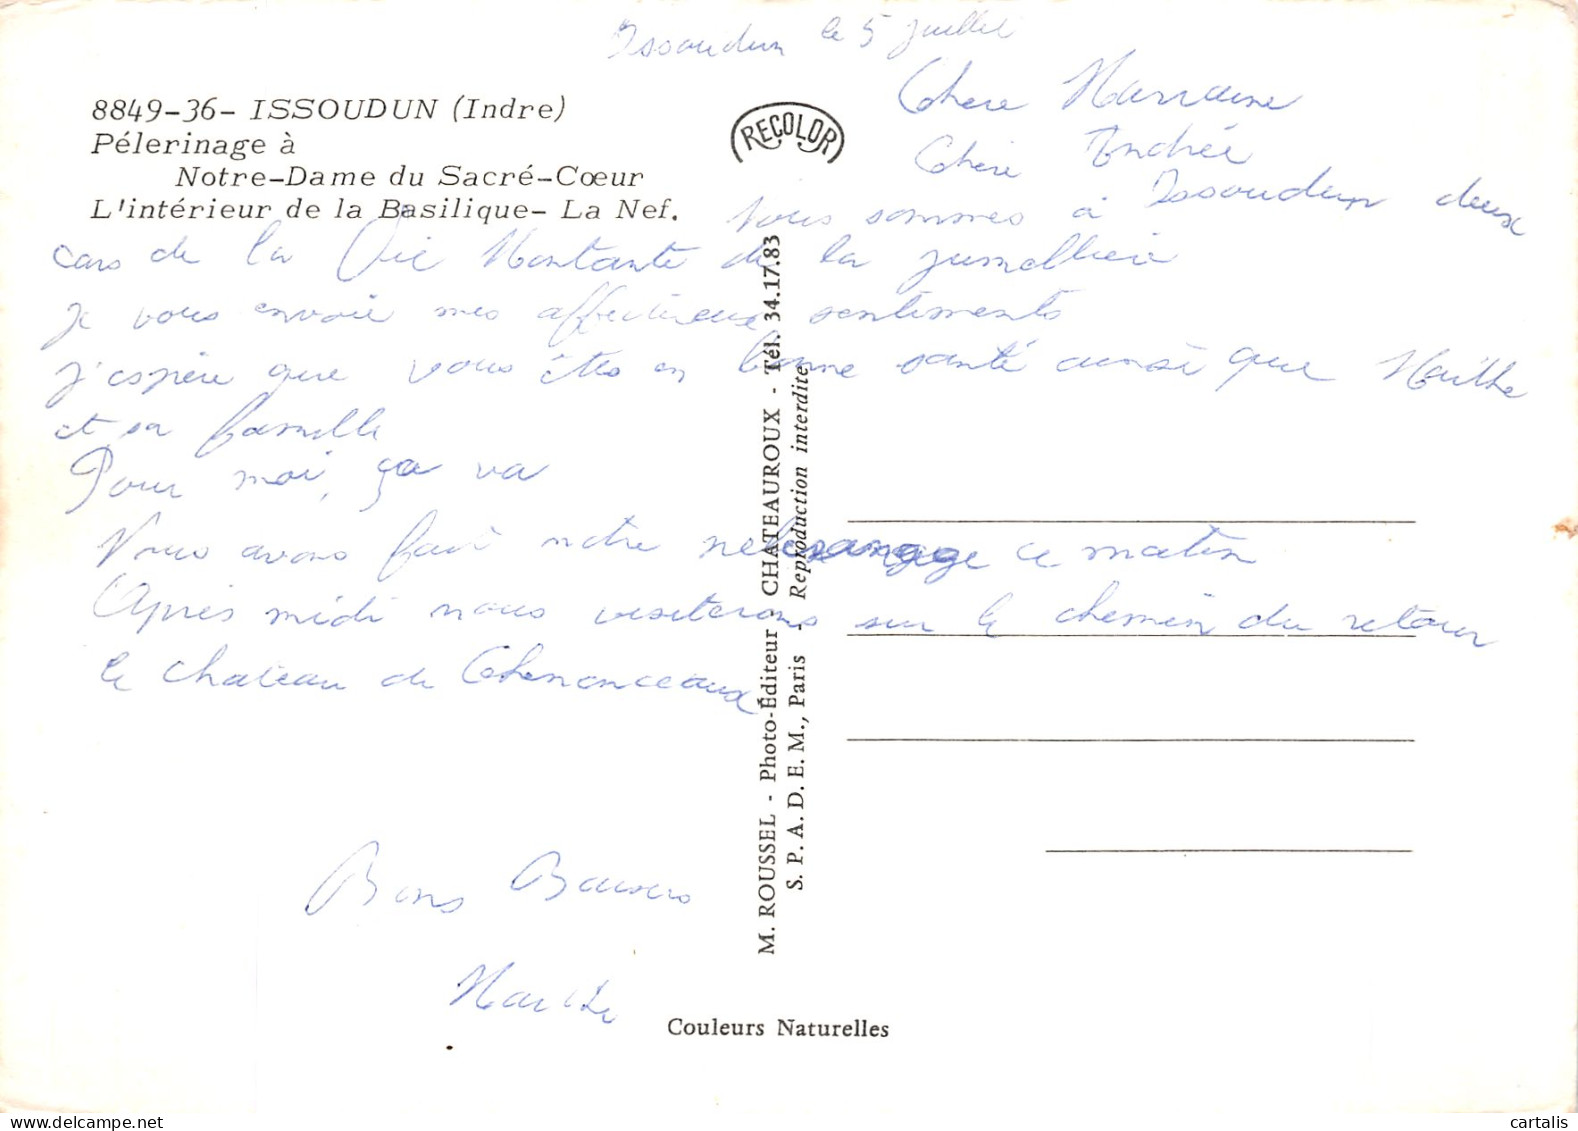 Issoudun le 5 juillet
8849-36- ISSOUDUN (Indre)
Pélerinage à
Notre-Dame du Sacré-Cœur
L'intérieur de la Basilique- La Nef.
RECOLOR
Chère Marraine
Chère Andrée
Nous sommes à Issoudun deux
cars de la Vie Montante de la jumellière
je vous envoie mes affectueux sentiments
j'espère que vous êtes en bonne santé ainsi que Marthe
et sa famille
Pour moi, ça va
Nous avons fait notre ce matin
Après midi nous visiterons sur le chemin du retour
le chateau de Chenonceaux
Bons Baisers
Marthe
M. ROUSSEL - Photo-Éditeur - CHATEAUROUX - Tél. 34.17.83
S. P. A. D. E. M., Paris - Reproduction interdite
Couleurs Naturelles
cartalis